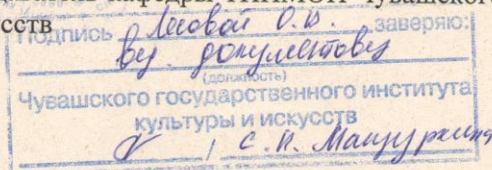 кафедры Чувашского
сств
Подпись Лесовой О.В. заверяю:
вед. документовед
(должность)
Чувашского государственного института
культуры и искусств
/ С.П. Мацуркина